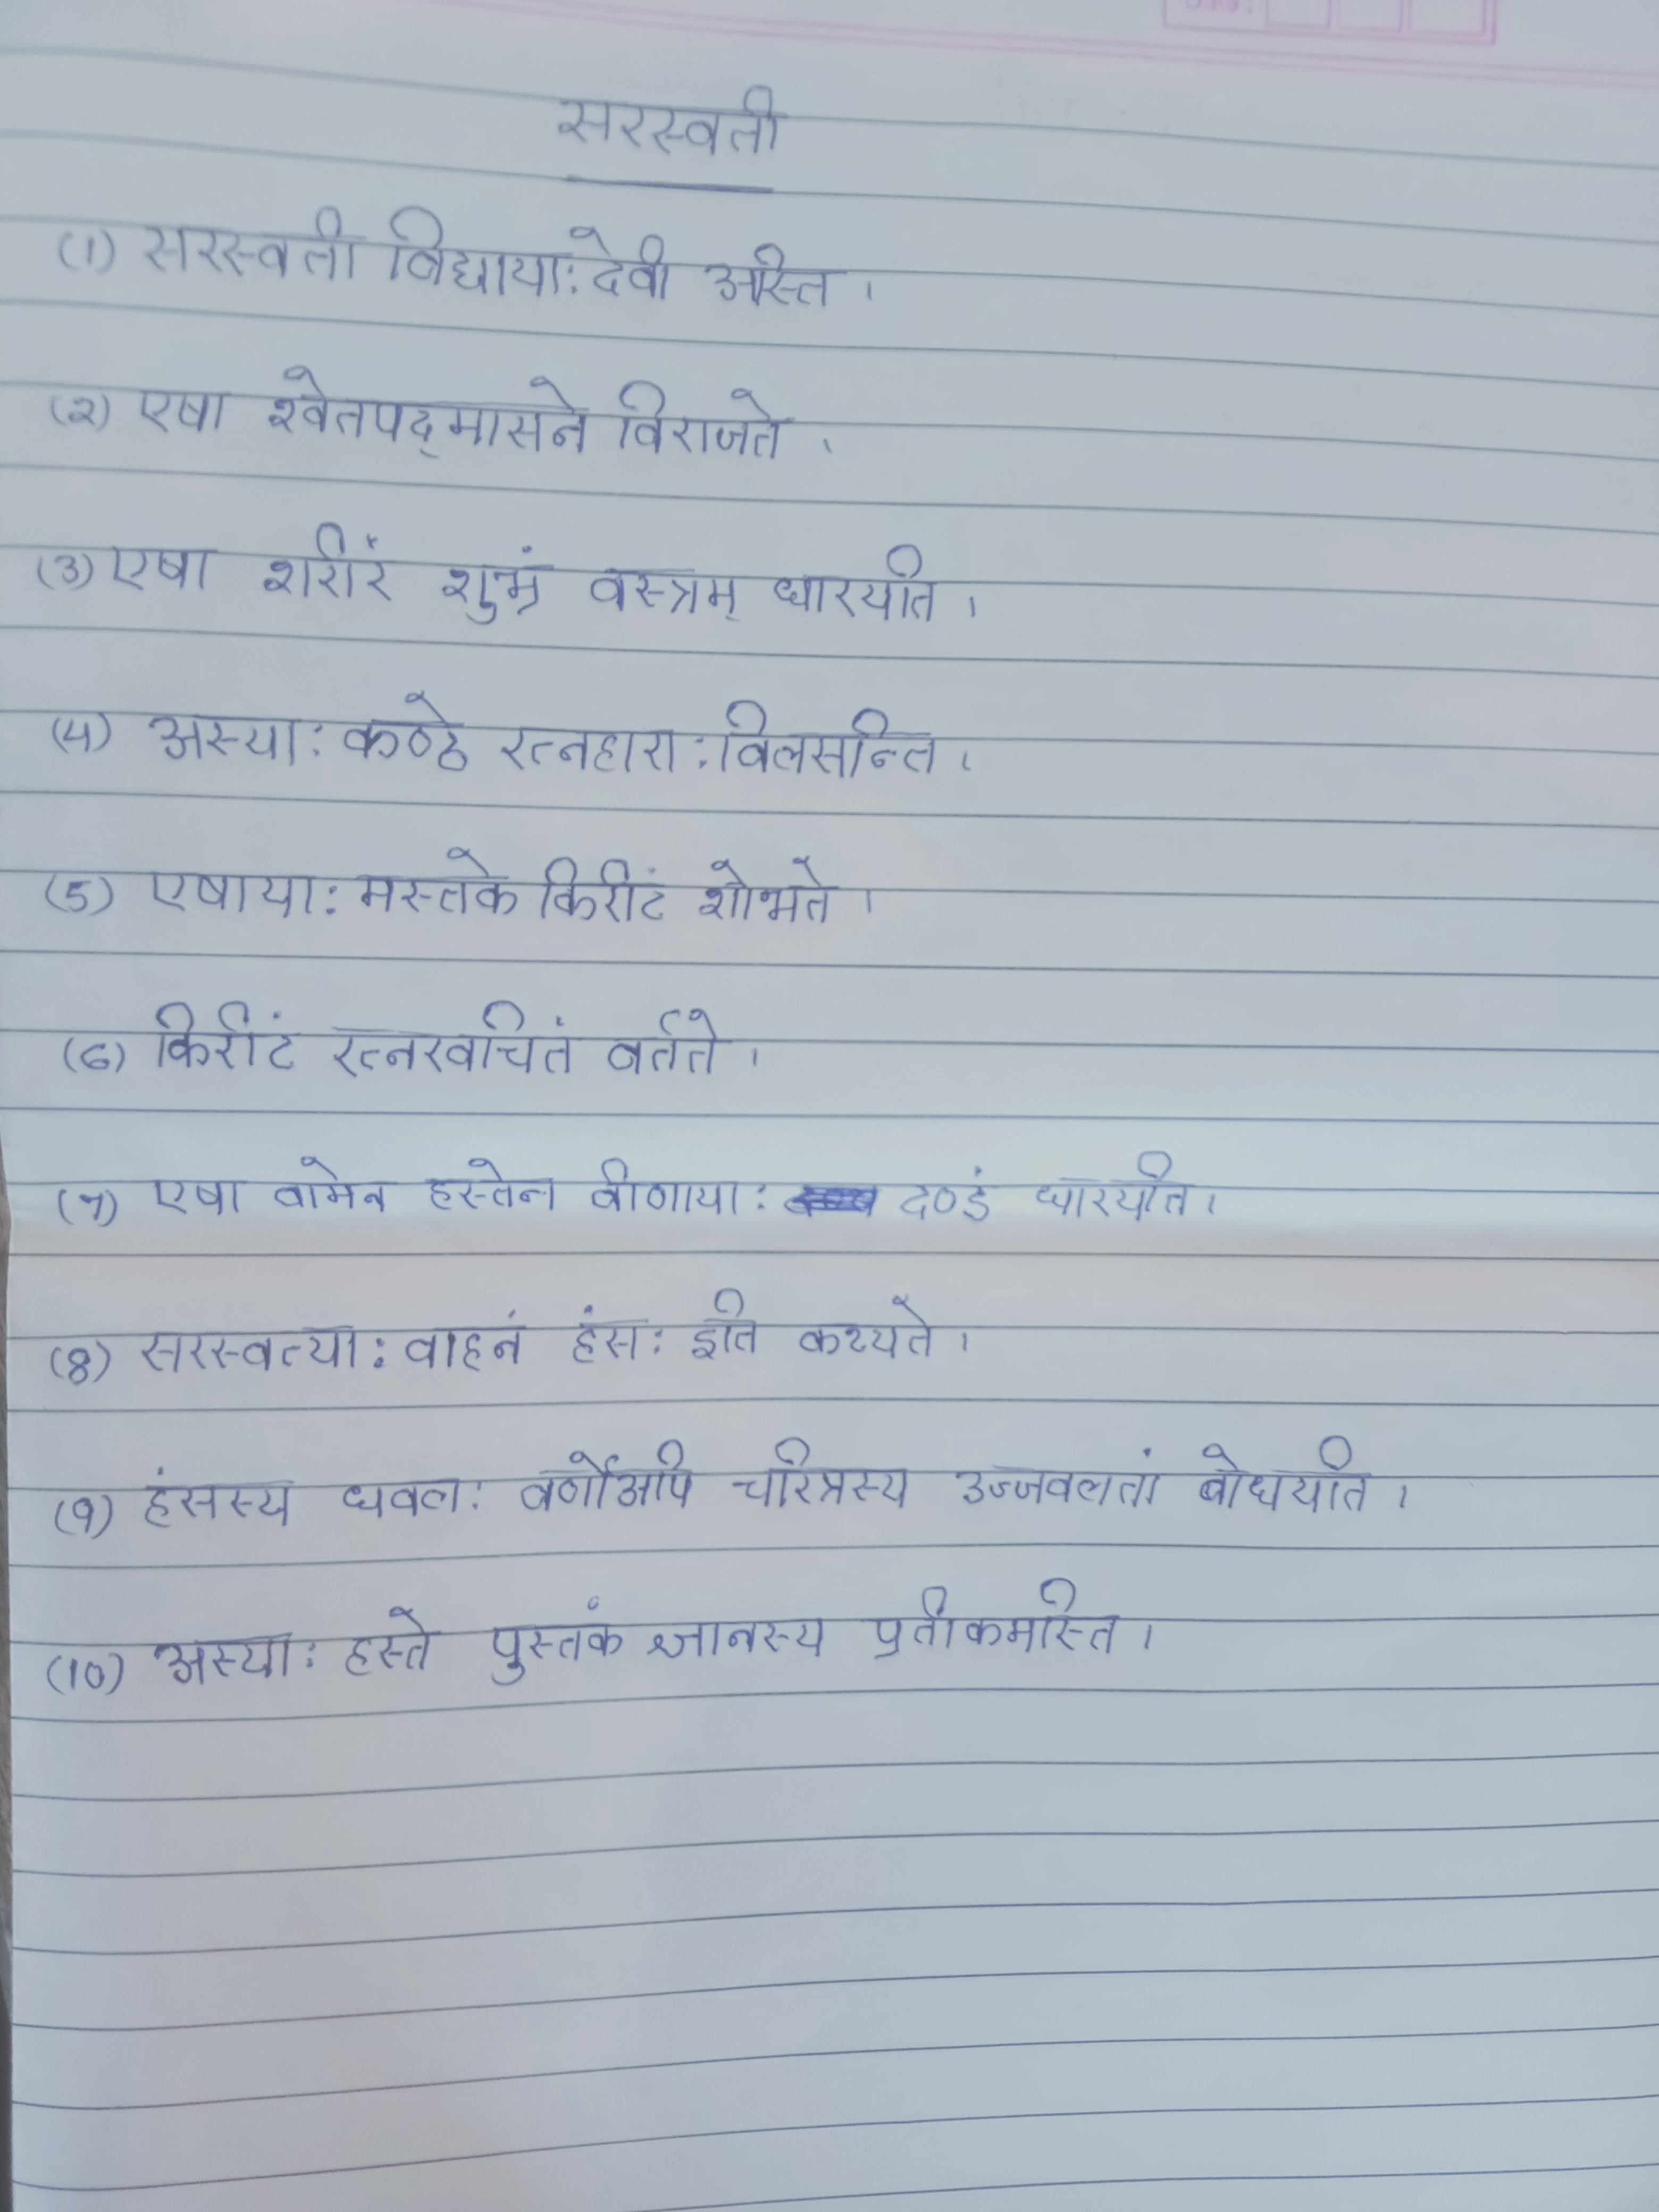 सरस्वती
(1) सरस्वती विद्याया: देवी अस्ति ।
(२) एषा श्वेतपद्‌मासने विराजते ।
(३) एषा शरीरं शुभ्रं वस्त्रम् धारयति ।
(4) अस्या: कण्ठे रत्नहारा: विलसन्ति ।
(5) एषाया: मस्तके किरीटं शोभते ।
(6) किरीटं रत्नखचितं वर्तते ।
(७) एषा वामेन हस्तेन वीणाया: दण्डं धारयति ।
(8) सरस्वत्या: वाहनं हंस: इति कथ्यते ।
(9) हंसस्य धवल: वर्णोअपि चरित्रस्य उज्जवलतां बोधयति ।
(10) अस्या: हस्ते पुस्तकं ज्ञानस्य प्रतीकमस्ति ।